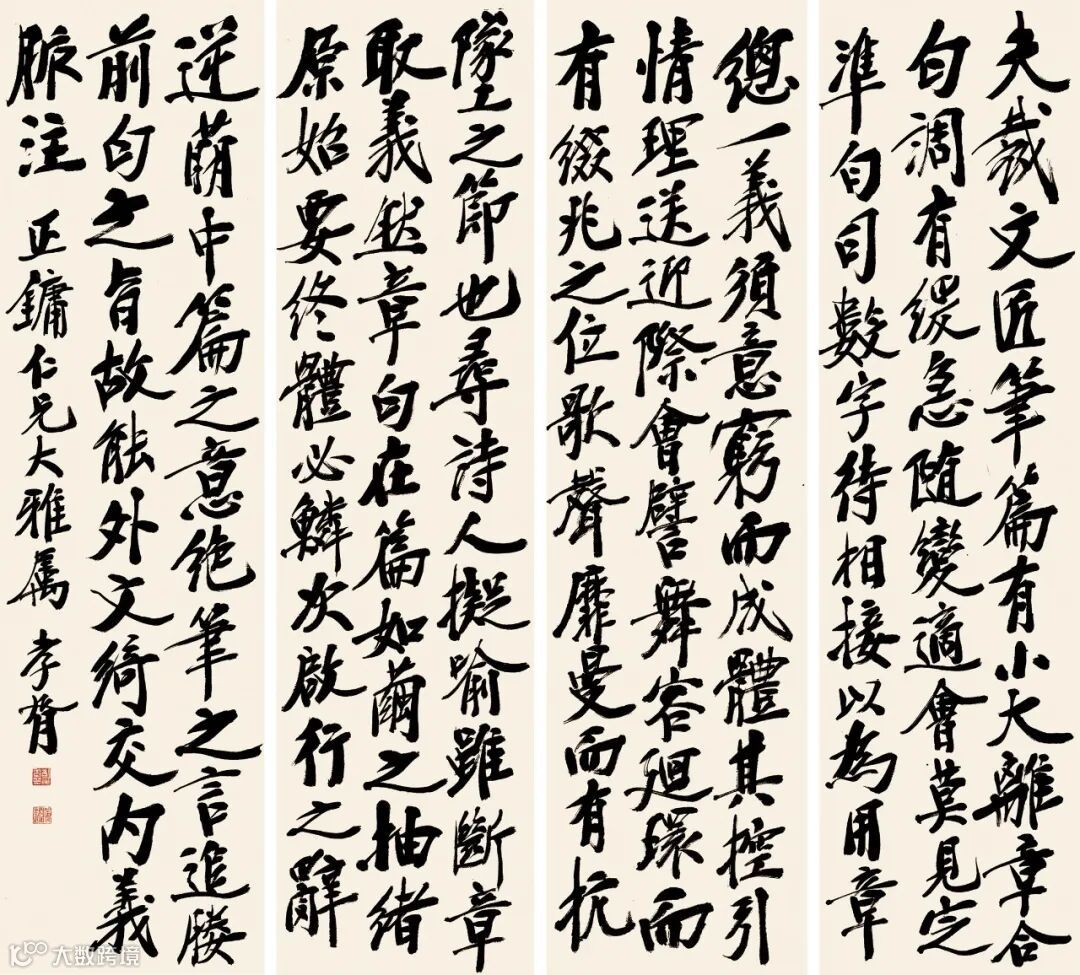 夫裁文匠筆篇有小大離章合
句調有緩急随變適會莫見定
準句司數字待相接以為用章
總一義須意窮而成體其控引
情理送迎際會譬舞容廻環而
有綴兆之位歌聲靡曼而有抗
墜之節也尋詩人擬喻雖斷章
取義然章句在篇如繭之抽緒
原始要終體必鱗次啟行之辭
逆萌中篇之意絶筆之言追媵
前句之旨故能外文綺交内義
脈注 正鏞仁兄大雅属 孝胥
大数跨境